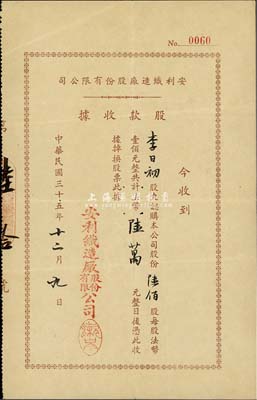 No. 0060
司公限有份股廠造織利安
據收款股
今收到
李日初股東認購本公司股份陸佰股每股法幣
壹佰元整共計法幣陸萬元整日後憑此收
據掉換股票此據
安利織造廠股份有限公司
中華民國三十五年十二月九日